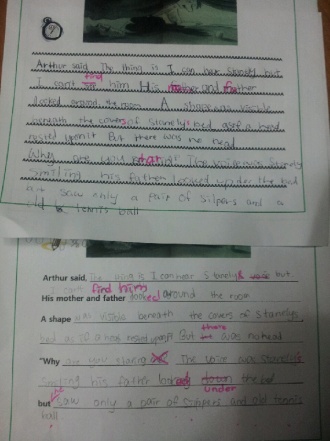 4
Arthur said, The thing is I can hear Stanely but
I can't find him His mother and father
looked around the room A shape was visible
beneath the covers of Stanely's bed as if a head
rested upon it But there was no head
Why are you staring The voice was Stanely
smiling his father looked under the bed
but saw only a pair of slipers and a
tennis ball
Arthur said, the thing is I can hear Stanely's voice but
I can't find him
His mother and father looked around the room
A shape was visible beneath the covers of Stanelys
bed as if a head rested upon But there was no head
"Why are you staring The voice was Stanely's
smiling his father looked down the bed
under
but saw only a pair of slippers and old tennis
ball